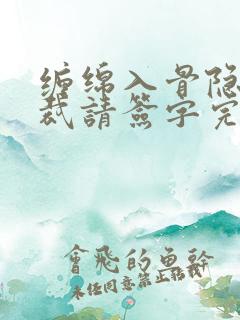 缠绵入骨隐
裁請簽字完
會飛的魚幹
未经同意禁止转载